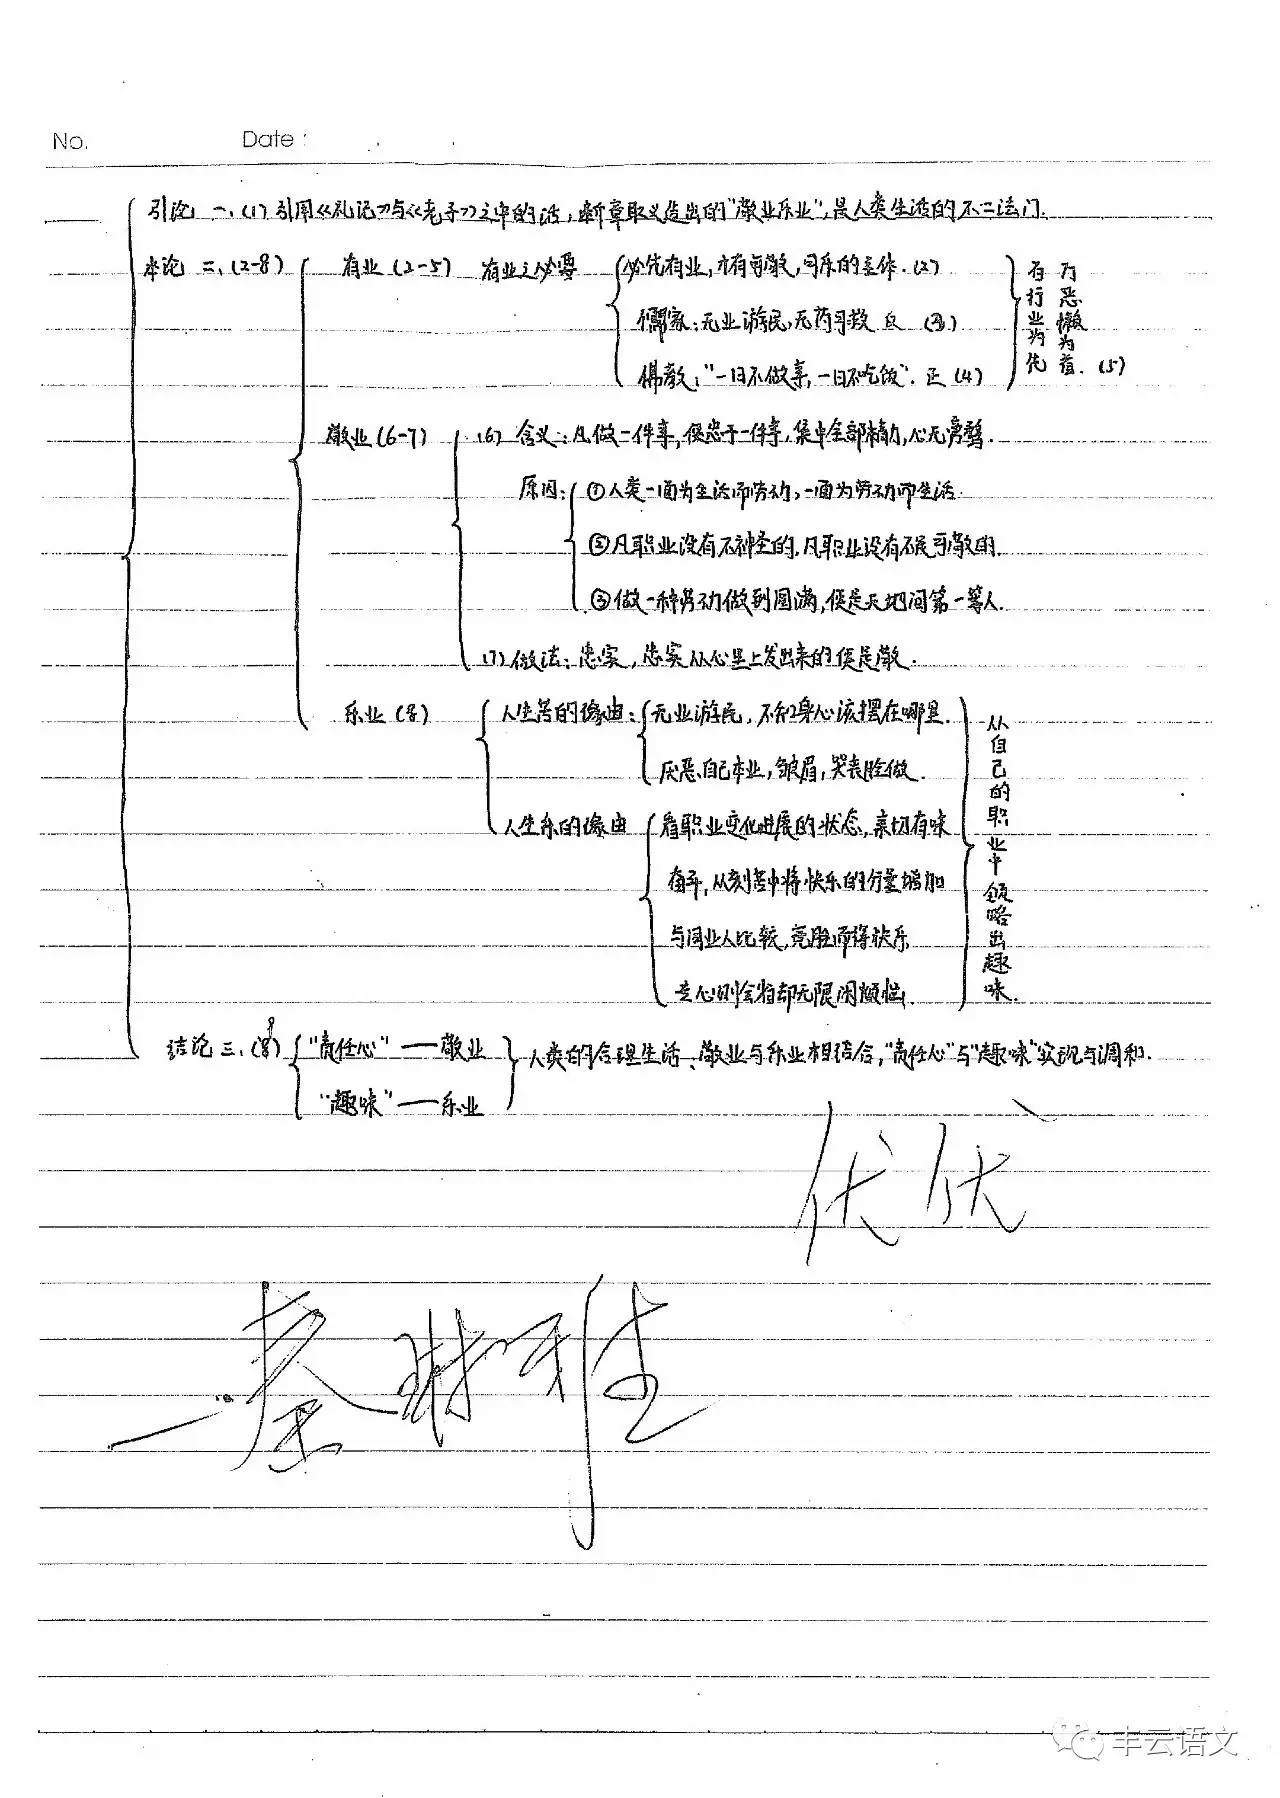 No. Date:
引论 一、(1) 引用《礼记》与《老子》之中的话，断章取义造出的"敬业乐业"，是人类生活的不二法门.
本论 二、(2-8) 有业 (2-5) 有业之必要 必先有业，才有可敬，可乐的主体. (2)
儒家：无业游民，无药可救 反 (3)
佛教："一日不做事，一日不吃饭". 正 (4)
百行业为先
万恶懒为首. (5)
敬业 (6-7) (6) 含义：凡做一件事，便忠于一件事，集中全部精力，心无旁骛.
原因：①人类一面为生活而劳动，一面为劳动而生活.
②凡职业没有不神圣的，凡职业没有不是可敬的.
③做一种劳动做到圆满，便是天地间第一等人.
(7) 做法：忠实，忠实从心里上发出来的便是敬.
乐业 (8) 人生苦的缘由：无业游民，不知身心该摆在哪里.
厌恶自己本业，皱眉，哭丧脸做.
人生乐的缘由 看职业变化进展的状态，亲切有味
奋斗，从刻苦中将快乐的分量增加
与同业人比较，竞胜而得快乐
专心则会省却无限闲烦恼.
从自己的职业中领略出趣味.
结论 三、(9) "责任心"——敬业 人类的合理生活、敬业与乐业相结合，"责任心"与"趣味"实现与调和.
"趣味"——乐业
丰云语文